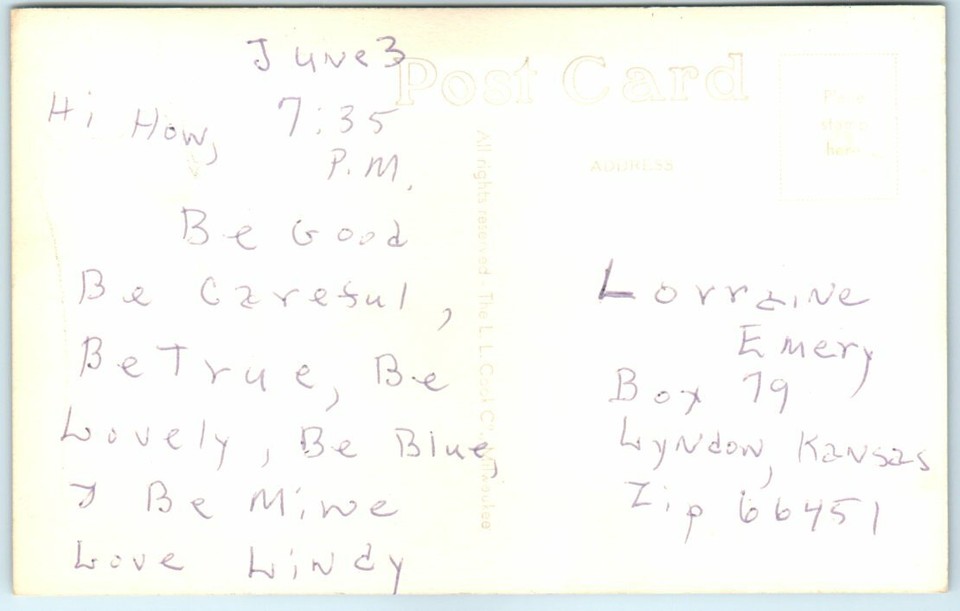 June 3
Hi How, 7:35
P.M.
Be Good
Be Careful,
Be True, Be
Lovely, Be Blue,
& Be Mine
Love Lindy
Post Card
Place
stamp
here
ADDRESS
All rights reserved - The L.L. Cook Co. Milwaukee
Lorraine
Emery
Box 79
Lyndon, Kansas
Zip 66451